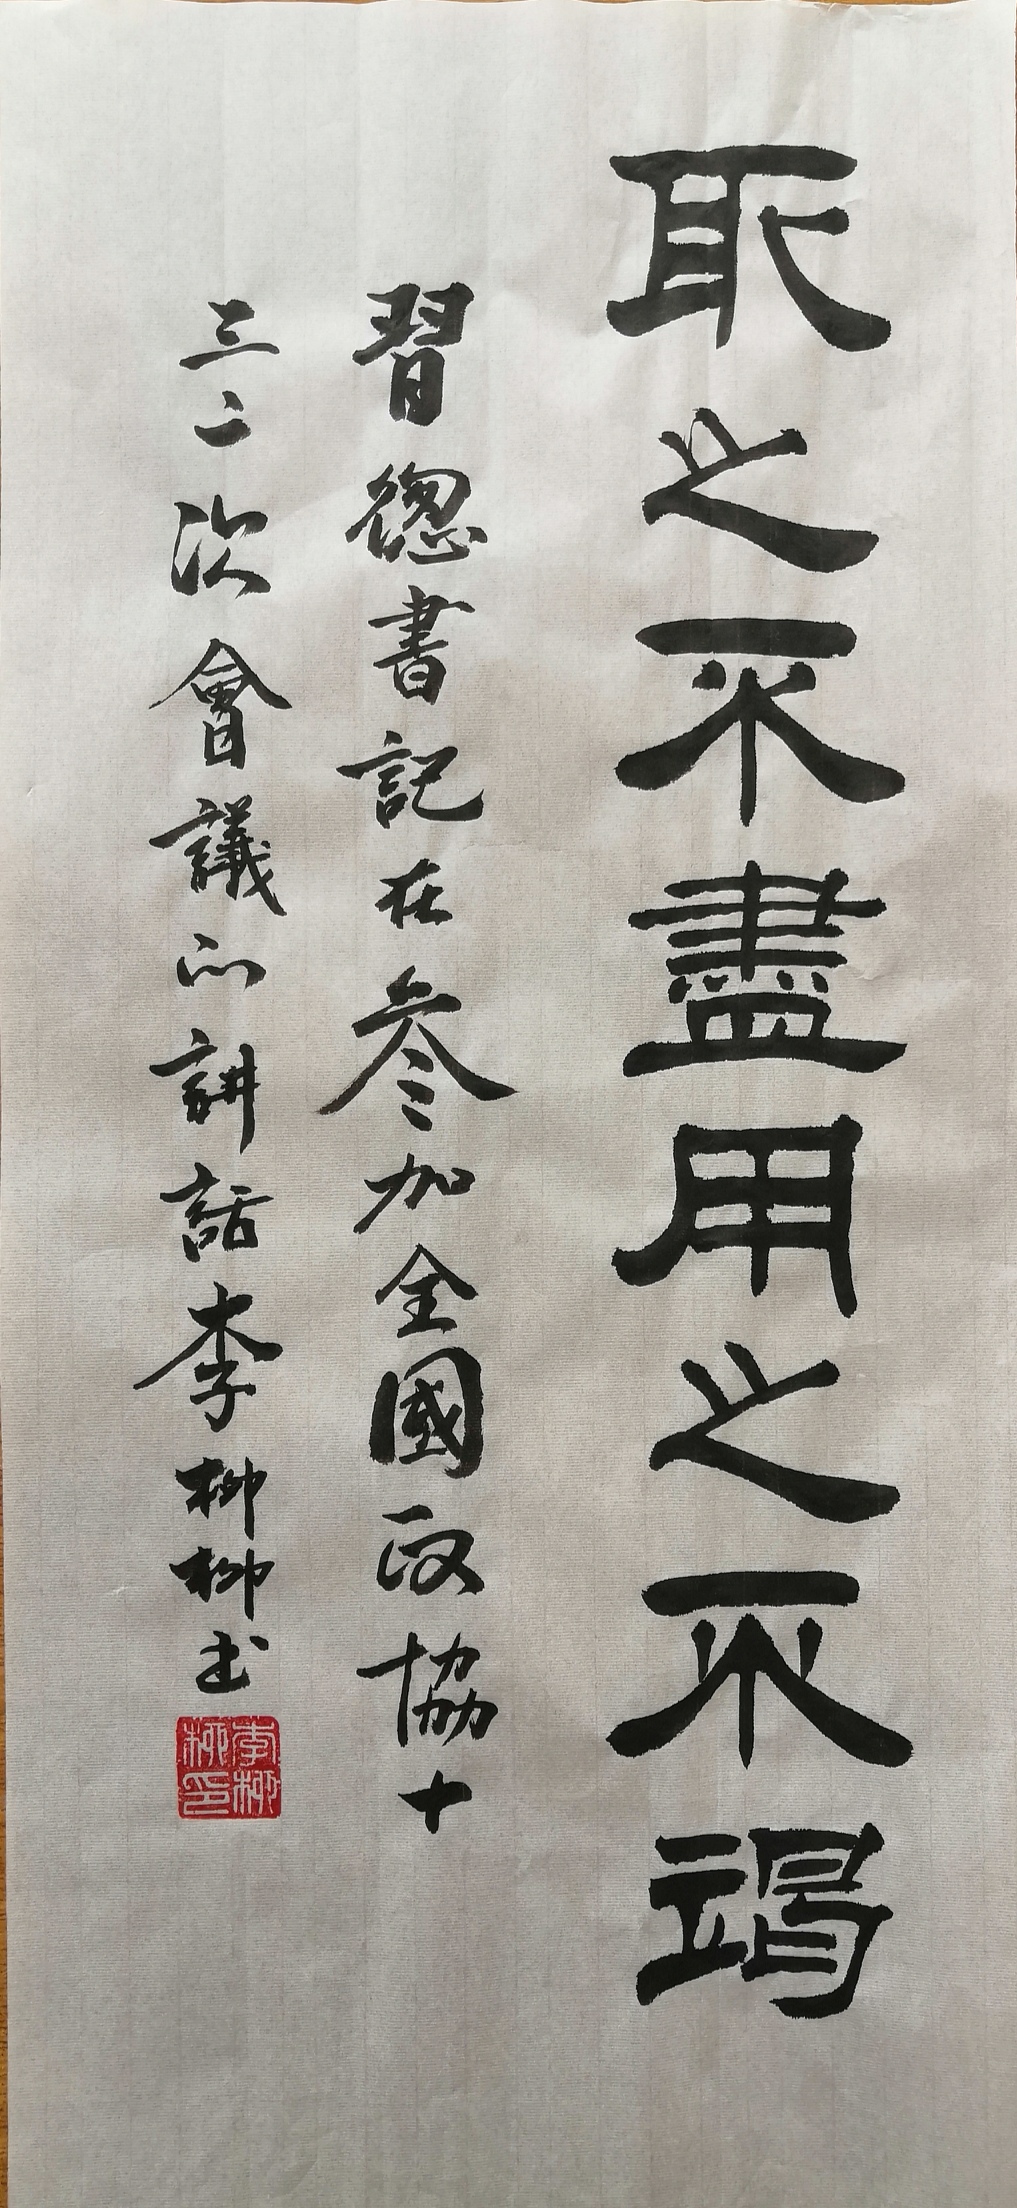 取之不盡用之不竭
習總書記在參加全國政協十
三二次會議的講話李柳柳书
李柳柳印